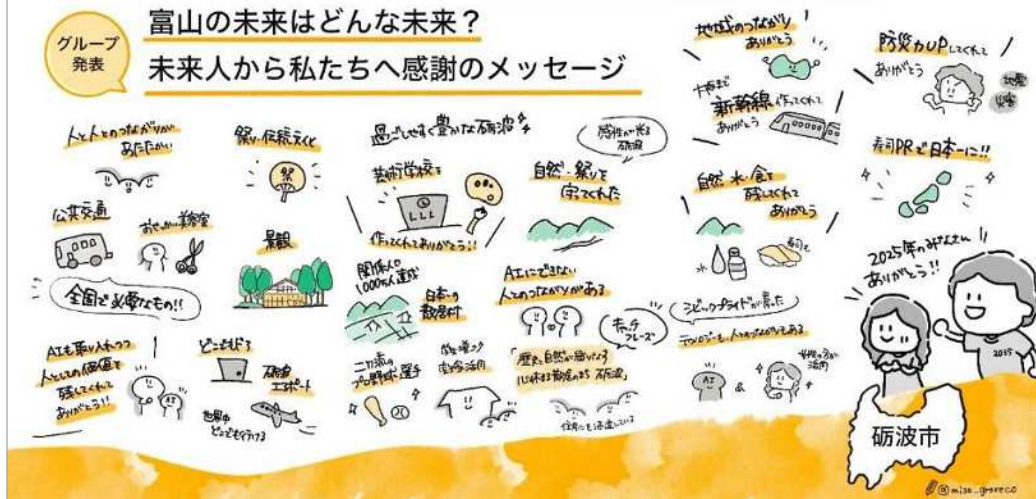 グループ
発表
富山の未来はどんな未来？
未来人から私たちへ感謝のメッセージ
人と人とのつながりが
あたたかい
公共交通
おせっかい美容室
全国で必要なもの!!
AIも取り入れつつ
人としての価値を
残してくれて
ありがとう!!
AI
祭り・伝統文化
祭
景観
どこでもドア
砺波
エアポート
世界中
どこでも行ける
過ごしやすく豊かな砺波
芸術学校を
作ってくれてありがとう!!
関係人口
1,000万人達成
日本一の
散居村
二刀流の
プロ野球選手
空き家
活用
感性が光る
砺波
自然・祭りを
守ってくれた
AIにできない
人とのつながりがある
キャッチ
フレーズ
「歴史と自然が織りなる
心休まる散居のまち 砺波」
地域のつながり
ありがとう
大阪まで
新幹線作ってくれて
ありがとう
自然・水・食を
残してくれて
ありがとう
水
寿司
シビックプライドが育った
テクノロジーも、人とのつながりもある
AI
&
女性の方が
活躍
防災力UPしてくれて
ありがとう
地震
災害
寿司PRで日本一に!!
2025年のみなさん
ありがとう!!
2035
砺波市